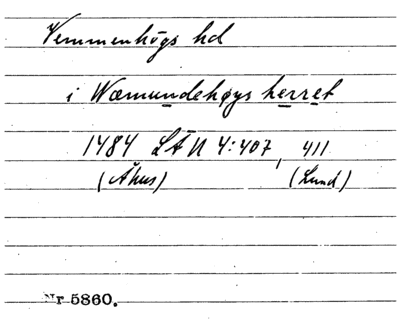 Vemmenhögs hd
i Wæmundehøys herret
1484 LÄN 4:407, 411
(Åhus) (Lund)
Nr 5860.